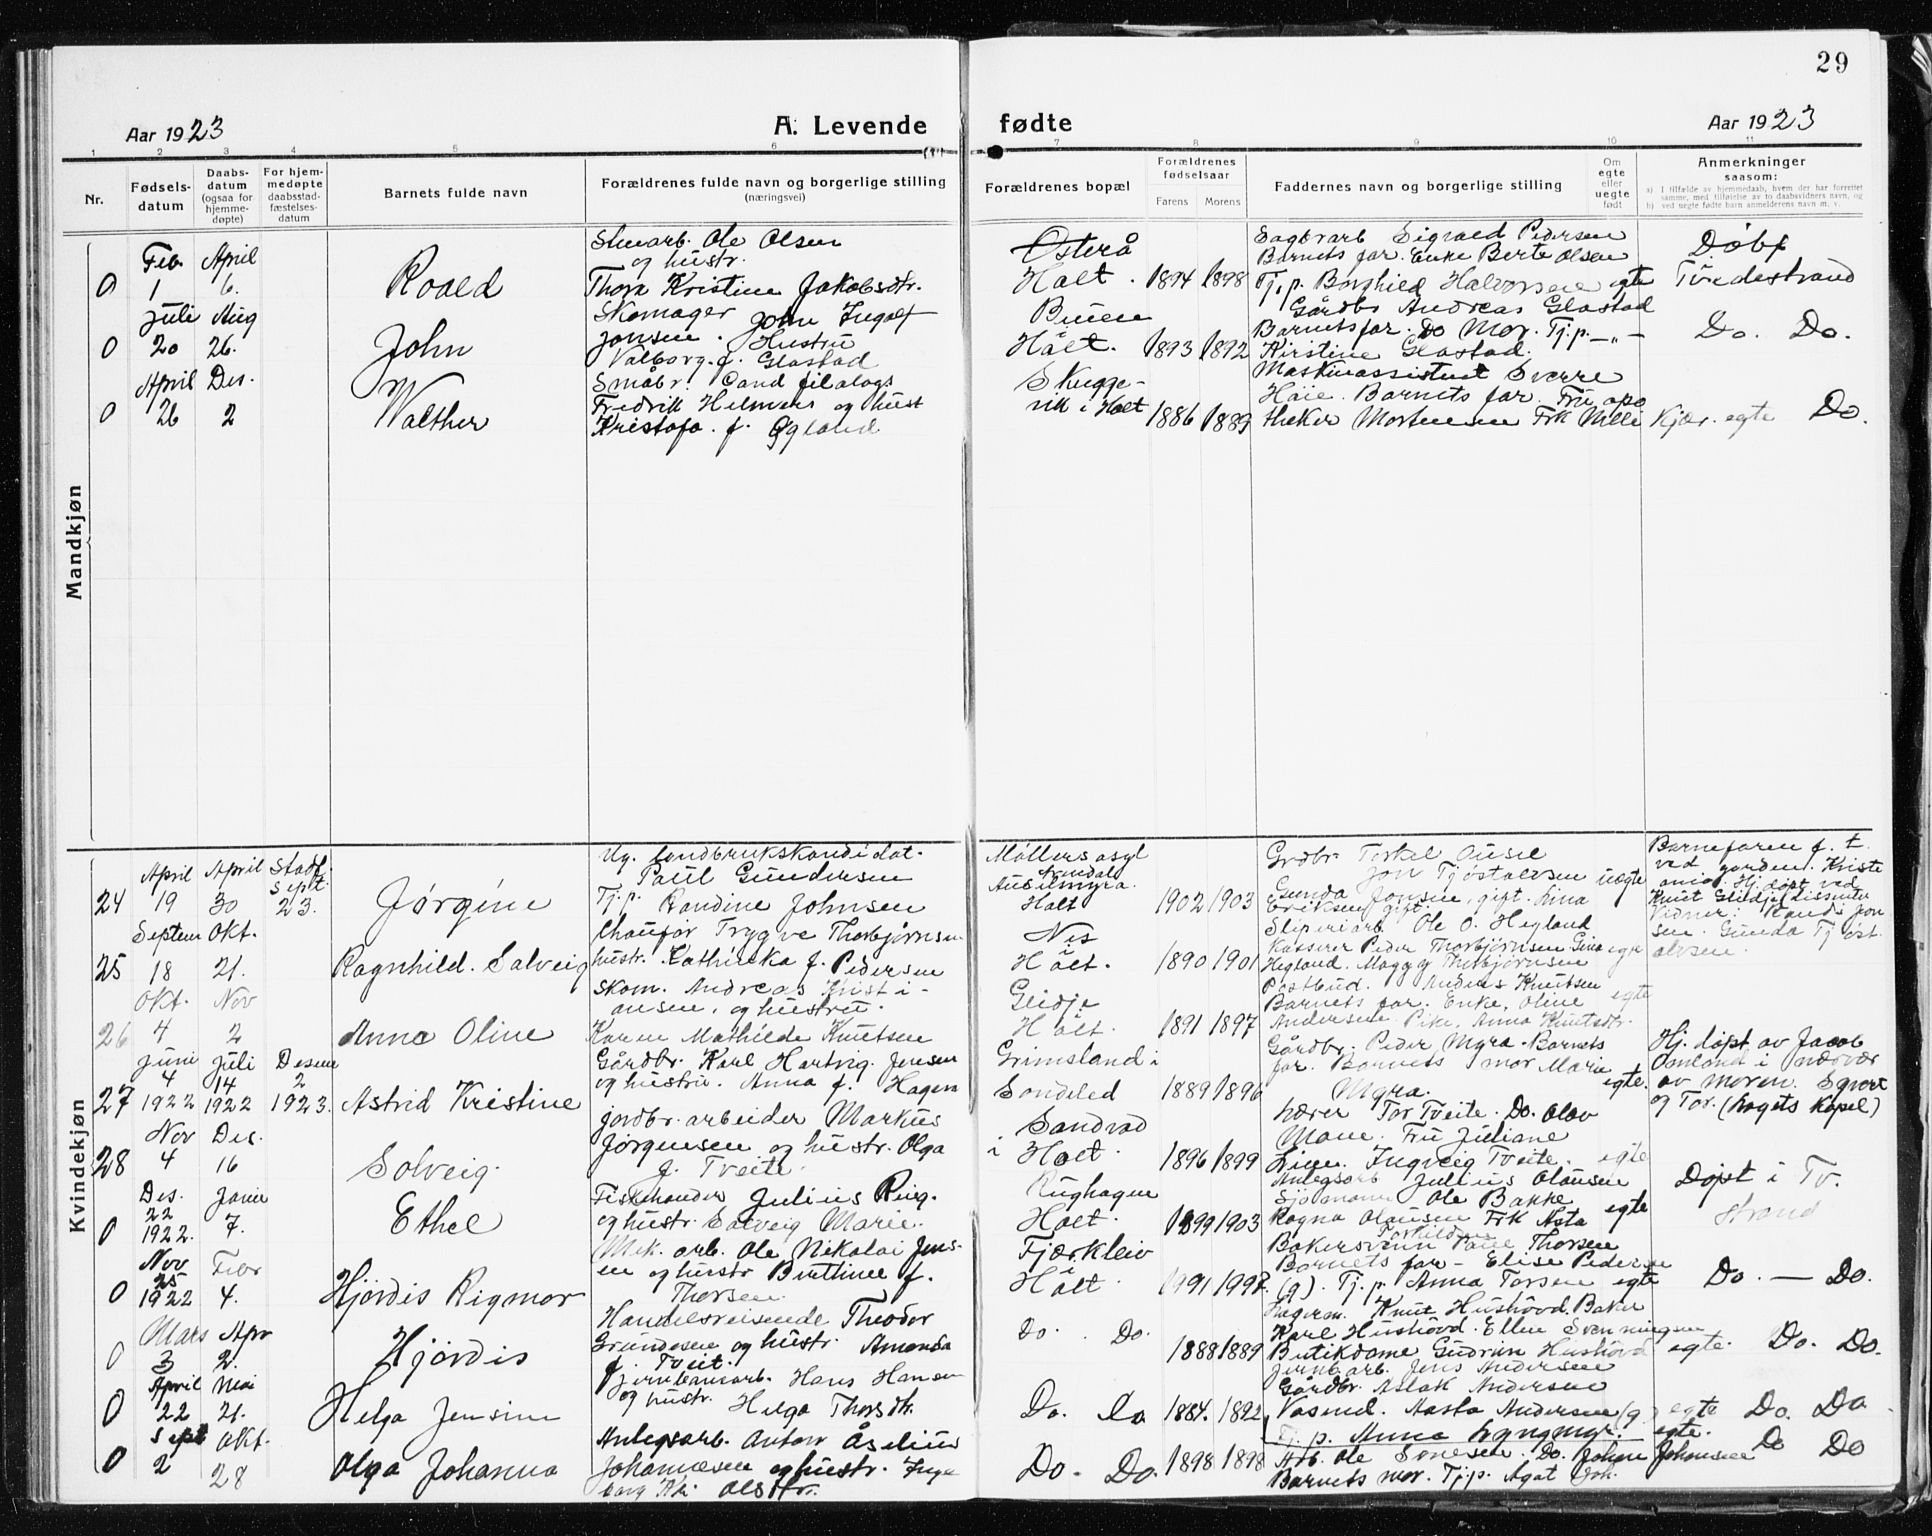 29
Aar 1923
A. Levende fødte
Aar 1923
1 2 3 4 5 6 7 8 9 10 11
Nr.
Fødsels-
datum
Daabs-
datum
(ogsaa for
hjemme-
døpte)
For hjem-
medøpte
daabsstad-
fæstelses-
datum
Barnets fulde navn
Forældrenes fulde navn og borgerlige stilling
(næringsvei)
Forældrenes bopæl
Forældrenes
fødselsaar
Farens Morens
Faddernes navn og borgerlige stilling
Om
egte
eller
uegte
født
Anmerkninger
saasom:
a) I tilfælde av hjemmedaab, hvem der har forrettet
samme, med tilføielse av to daabsvidners navn, og
b) ved uegte fødte barn anmelderens navn m. v.
Mandkjøn
0
Feb.
1
April
6.
Roald
Stenarb. Ole Olsen
og hustr.
Thora Kristine Jakobsdtr.
Østerå
Holt.
1894 1898
Sagbrarb Sigvald Pedersen
Barnets far. Enke Berte Olsen
Tj.p. Borghild Halvorsen
egte
Døbt
Tvedestrand
0
Juli
20
Aug
26.
John
Skomager John Ingolf
Jonsen. Hustru
Valborg. f. Glastad
Buien
Holt.
1893 1892
Gårdbr Andreas Glastad
Barnets far. Do Mor. Tj.p. — „ —
Kirstine Glastad.
Do. Do.
0
April
26
Des.
2
Walther
Småbr. Cand filologs
Fredrik Helmers og hust
Kristofa. f. Øgland
Skugge-
vik i Holt
1886 1889
Maskinassistent Sverre
Høie. Barnets far. Fru apo
theker Mortensen Frk Nilli Kjær.
egte
Do.
Kvindekjøn
24
April
19
April
30
Stadf.
Sept.
23.
Jørgine
Ug. landbrukskandidat.
Paul Gundersen
Tj.p. Randine Johnsen
Møllers asyl
Arendal
Auselmyra.
Holt
1902 1903
Grdbr. Torkel Ausel
Jon Tjøstalvsen
Gunda Jonsen, gift. Lina
Eriksen gift.
uegte
Barnefaren f. t.
ved garden. Kriste
ania. Hj. døpt ved
Knut Glidje Lissinter
Vidner: Randi Jon
sen. Gunda Tjøst
alvsen.
25
Septem
18
Okt.
21.
Ragnhild. Solveig
Chaufør Trygve Thorbjørnsen
hustr. Kathinka f. Pedersen
Nes
Holt.
1890 1901
Sliperiarb Ole O. Hegland
Kasserer Peder Thorbjørnsen Gina
Hegland. Maggy Thorbjørnsen
egte
26
Okt.
4
Nov
2
Anna Oline
Skom. Andreas Kristi-
ansen, og hustru.
Karen Mathilde Knutsen
Glidje
Holt.
1891 1897
Postbud. Anders Knutsen
Barnets far. Enke. Oline
Andersen. Pike. Anna Knutsdtr.
egte
27
Juni
4
1922
Juli
14
1922
Desem
2
1923.
Astrid Kristine
Gårdbr. Karl Hartvig. Jensen
og hustru. Anna f. Hagen
Grimsland i
Søndeled
1889 1896
Gårdbr. Peder Myra. Barnets
far. Barnets mor Marie
Myra.
egte.
Hj. døpt av Jacob
Omland i nærvær
av moren. Sgvert
og Tor. (Lagets Kapel)
28
Nov
4
Des.
16
Solveig.
Jordbr. arbeider Markus
Jørgensen og hustr. Olga
f. Tveite.
Sandvad
i Holt.
1896 1899
Lærer Tor Tveite. Do. Olav
Moen. Fru Juliane
Lien. Ingveig Tveite.
egte
0
Des.
22
1922.
Janu
7.
Ethel
Fiskehandler Julius Ring.
og hustr. Solveig Marie.
Rughagen
Holt.
1899 1903
Anlegsarb Julius Olausen
Sjømann Ole Bakke
Ragna Olausen Frk Asta
Torkildsen
egte
Døpt i Tv.
strand
0
Nov
25
1922
Febr
4.
Hjördis Rigmor
Mek. arb. Ole Nikolai Jens-
en og hustr Birttinee f.
Thorsen.
Fjærkleiv
i
Holt
1991 1997.
Bakersvenn Paul Thorsen
Barnets far — Elise Pedersen
(g). Tj.p. Anna Torsen
egte
Do. — Do.
0
Mars
3
Apr
2.
Hjördis
Handelsreisende Theodor
Grundesen og hustr. Amanda
f. Tveit.
Do. Do.
1888 1889
Lagerm. Knut Hushovd. Baker
Karl Hushovd. Ellen Svenningsen
Butikdame Gudrun Hushovd
egte.
Do. Do.
0
April
22
Mai
21.
Helga Jensine
Jernbanearb. Hans Hansen
og hustr. Helga Thorsdtr.
Do. Do
1884. 1892
Jernbarb. Jens Andersen
Gårdbr. Aslak Andersen
Vasmd. Aasta Andersen (g)
Tj. p. Anna Langmyr.
egte
egte.
Do. Do
0
Sept
2
Okt.
28
Olga Johanna
Anlegsarb. Anton Åselius
Johannesen og hustr. Inge
borg Olsdtr.
Do. Do.
1898 1898
Arb. Ole Sørensen. Do. Johan Johansen
Barnets mor. Tj.p. Agat Joh.
Do Do